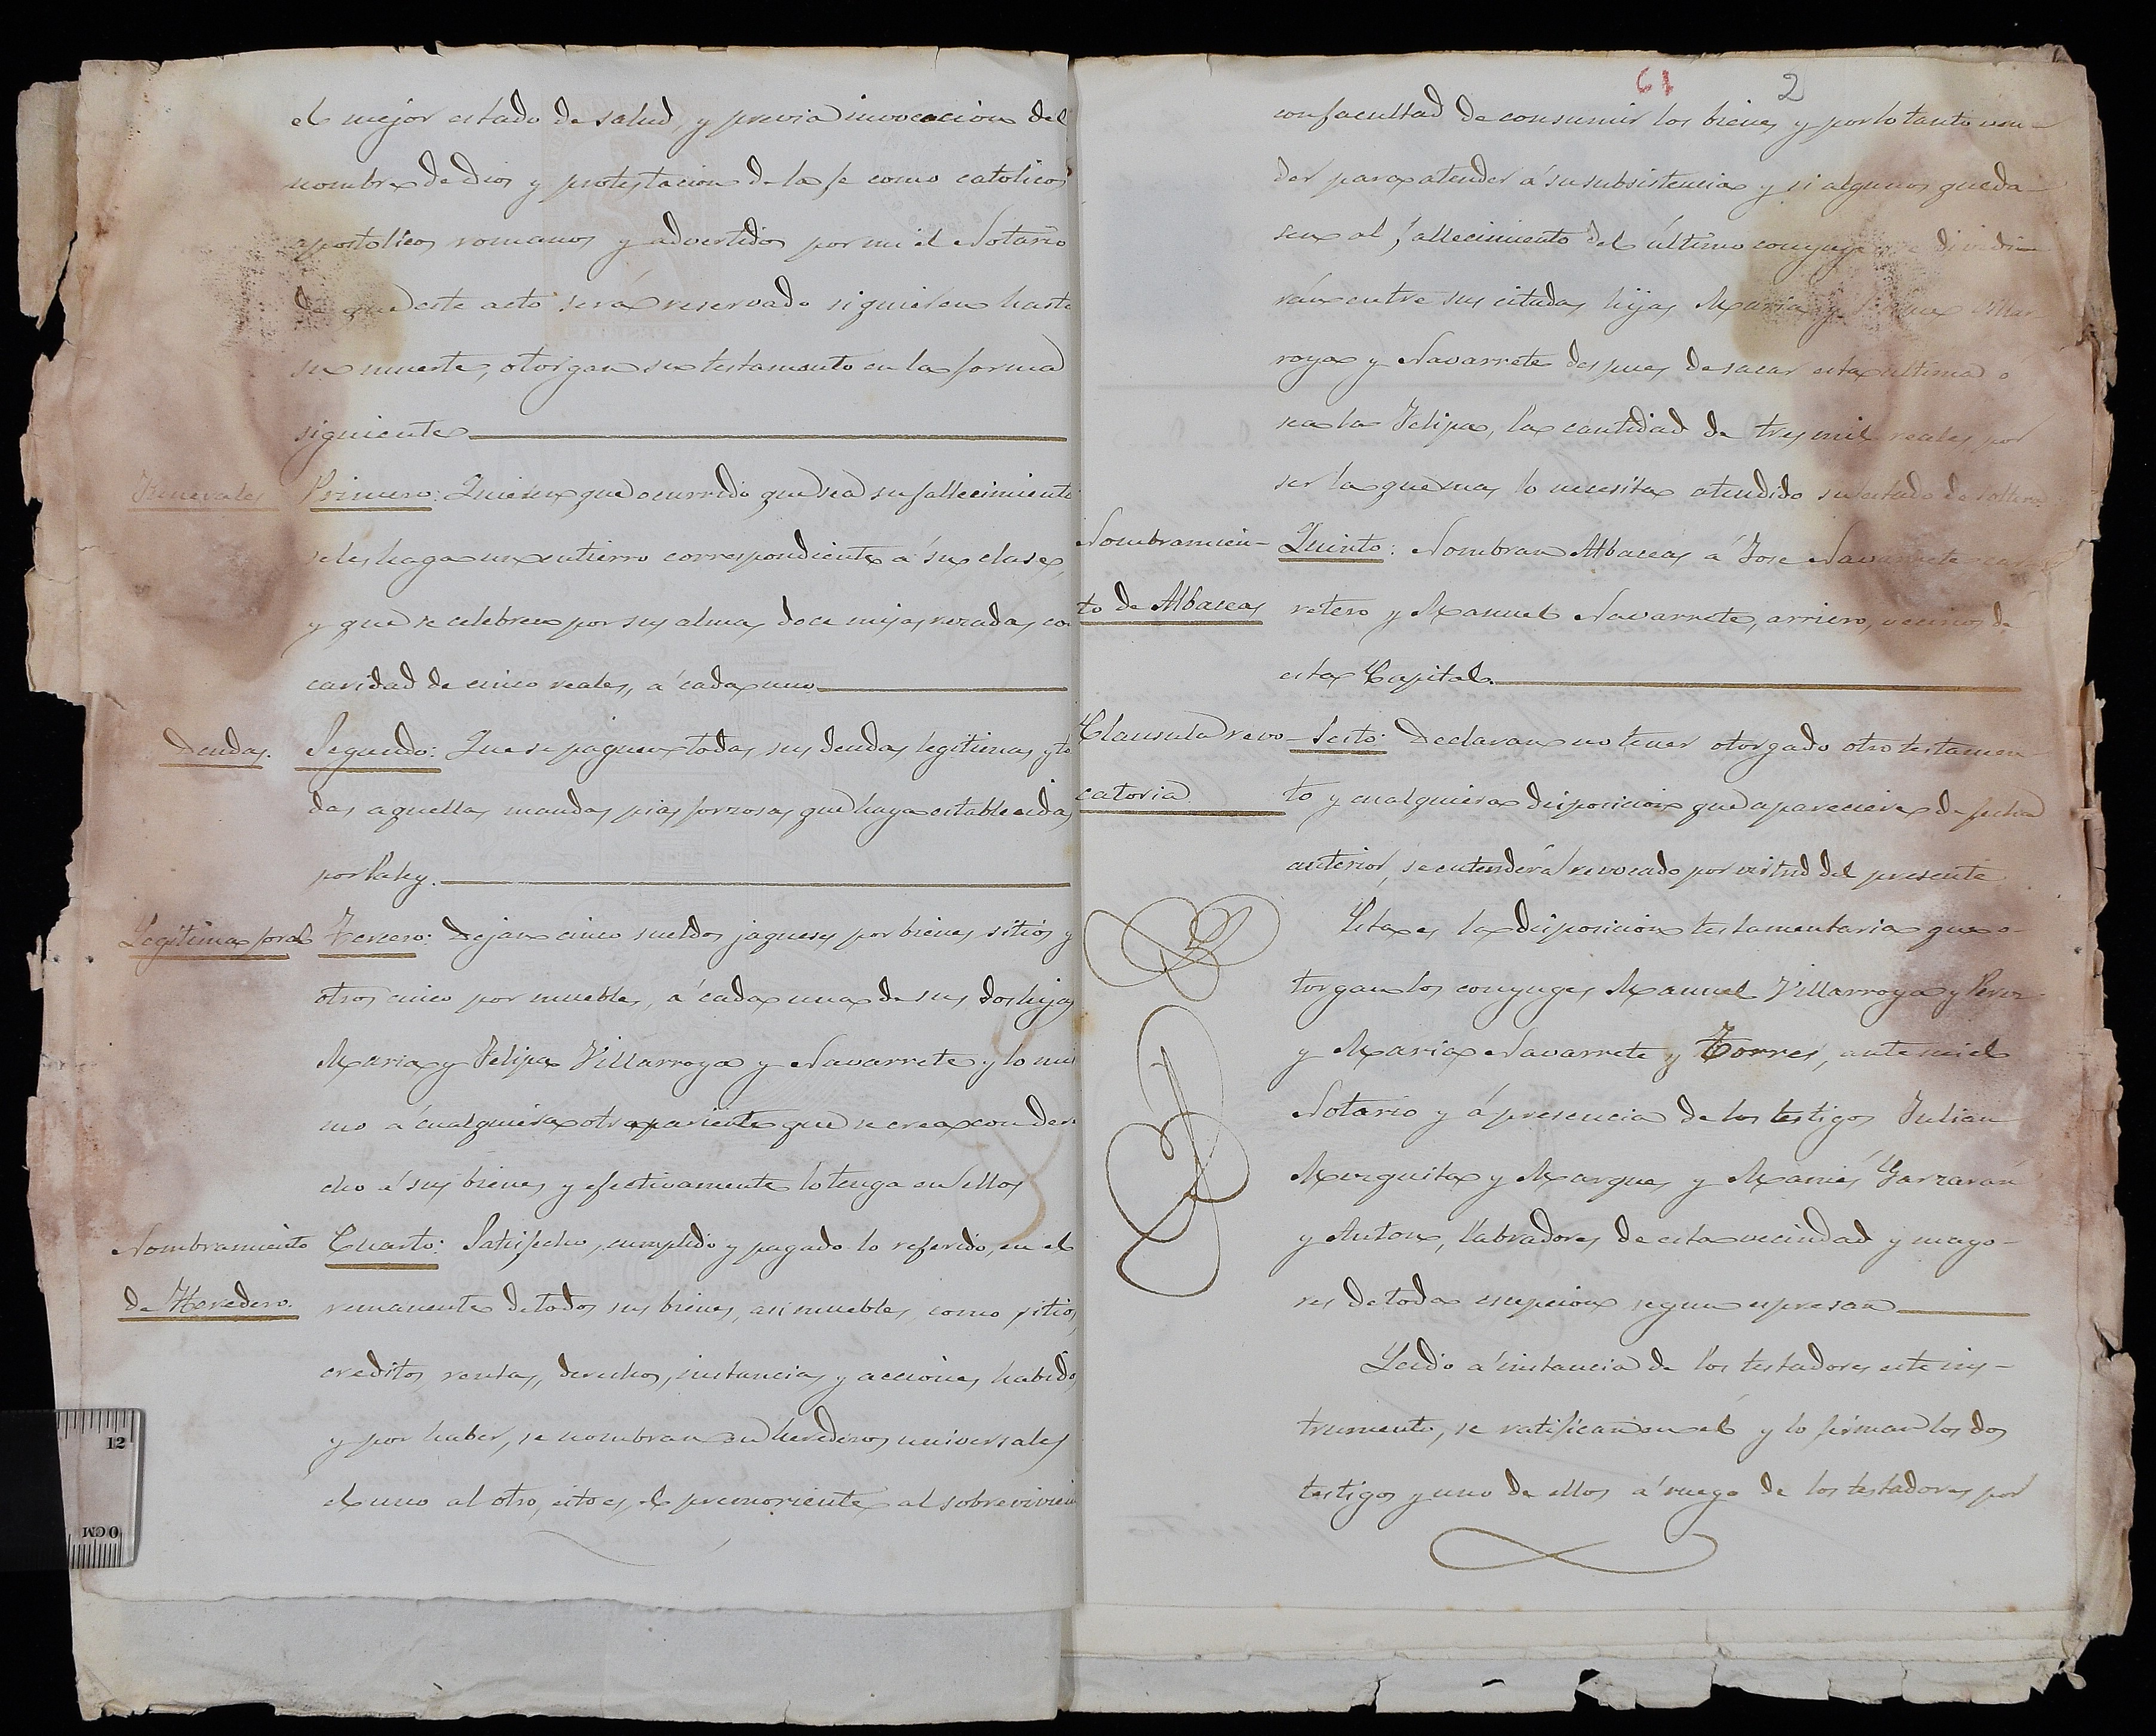 el mejor estado de salud, y previa invocacion del
nombre de Dios y protestacion de la fe como catolicos
apostolicos romanos y advertidos por mi el Notario
de que este acto será reservado si quieren hasta
su muerte, otorgan su testamento en la forma
siguiente
Funerales Primero: Quieren que ocurrido que sea su fallecimiento
se les haga un entierro correspondiente á su clase,
y que se celebren por sus almas doce misas rezadas, co
caridad de cinco reales, á cada uno
Deudas. Segundo: Que se paguen todas sus deudas legitimas y to
das aquellas mandas pias forzosas que haya establecidas
por la ley.
Legitima foral Tercero: Dejan cinco sueldos jaqueses por bienes sitios y
otros cinco por muebles, á cada una de sus dos hijas
Maria y Felipa Villarroya y Navarrete y lo mis
mo á cualquiera otro pariente que se crea con dere
cho á sus bienes y efectivamente lo tenga en ellos
Nombramiento Cuarto: Satisfecho, cumplido y pagado lo referido, en el
de Heredero. remanente de todos sus bienes, asi muebles, como sitios,
creditos, rentas, derechos, instancias y acciones, habidos
y por haber, se nombran en herederos universales
el uno al otro, esto es, el premoriente al sobrevivien
61 2
con facultad de consumir los bienes y por lo tanto ven-
der para atender á su subsistencia y si algunos queda-
sen al fallecimiento del último conyuge se dividi-
rán entre sus citadas hijas Maria y Felipa Villar-
roya y Navarrete despues de sacar esta ultima o
sea la Felipa, la cantidad de tres mil reales, por
ser la que mas lo necesita atendido su estado de soltera.
Nombramien- Quinto: Nombran Albaceas á Jose Navarrete car-
to de Albaceas retero y Manuel Navarrete, arriero, vecinos de
esta Capital.
Clausula revo- Sesto: Declaran no tener otorgado otro testamen
catoria to y cualquiera disposicion que apareciera de fecha
anterior, se entenderá revocado por virtud del presente
Esta es la disposicion testamentaria que o-
torgan los conyuges Manuel Villarroya y Perez
y Maria Navarrete y Torres, ante mi el
Notario y á presencia de los testigos Julian
Murguita y Marques y Mamés Garzarán
y Anton, labradores de esta vecindad y mayo-
res de toda escepcion segun espresan
Leido á instancia de los testadores este ins-
trumento, se ratifican en él y lo firman los dos
testigos y uno de ellos á ruego de los testadores por
12
0 CM